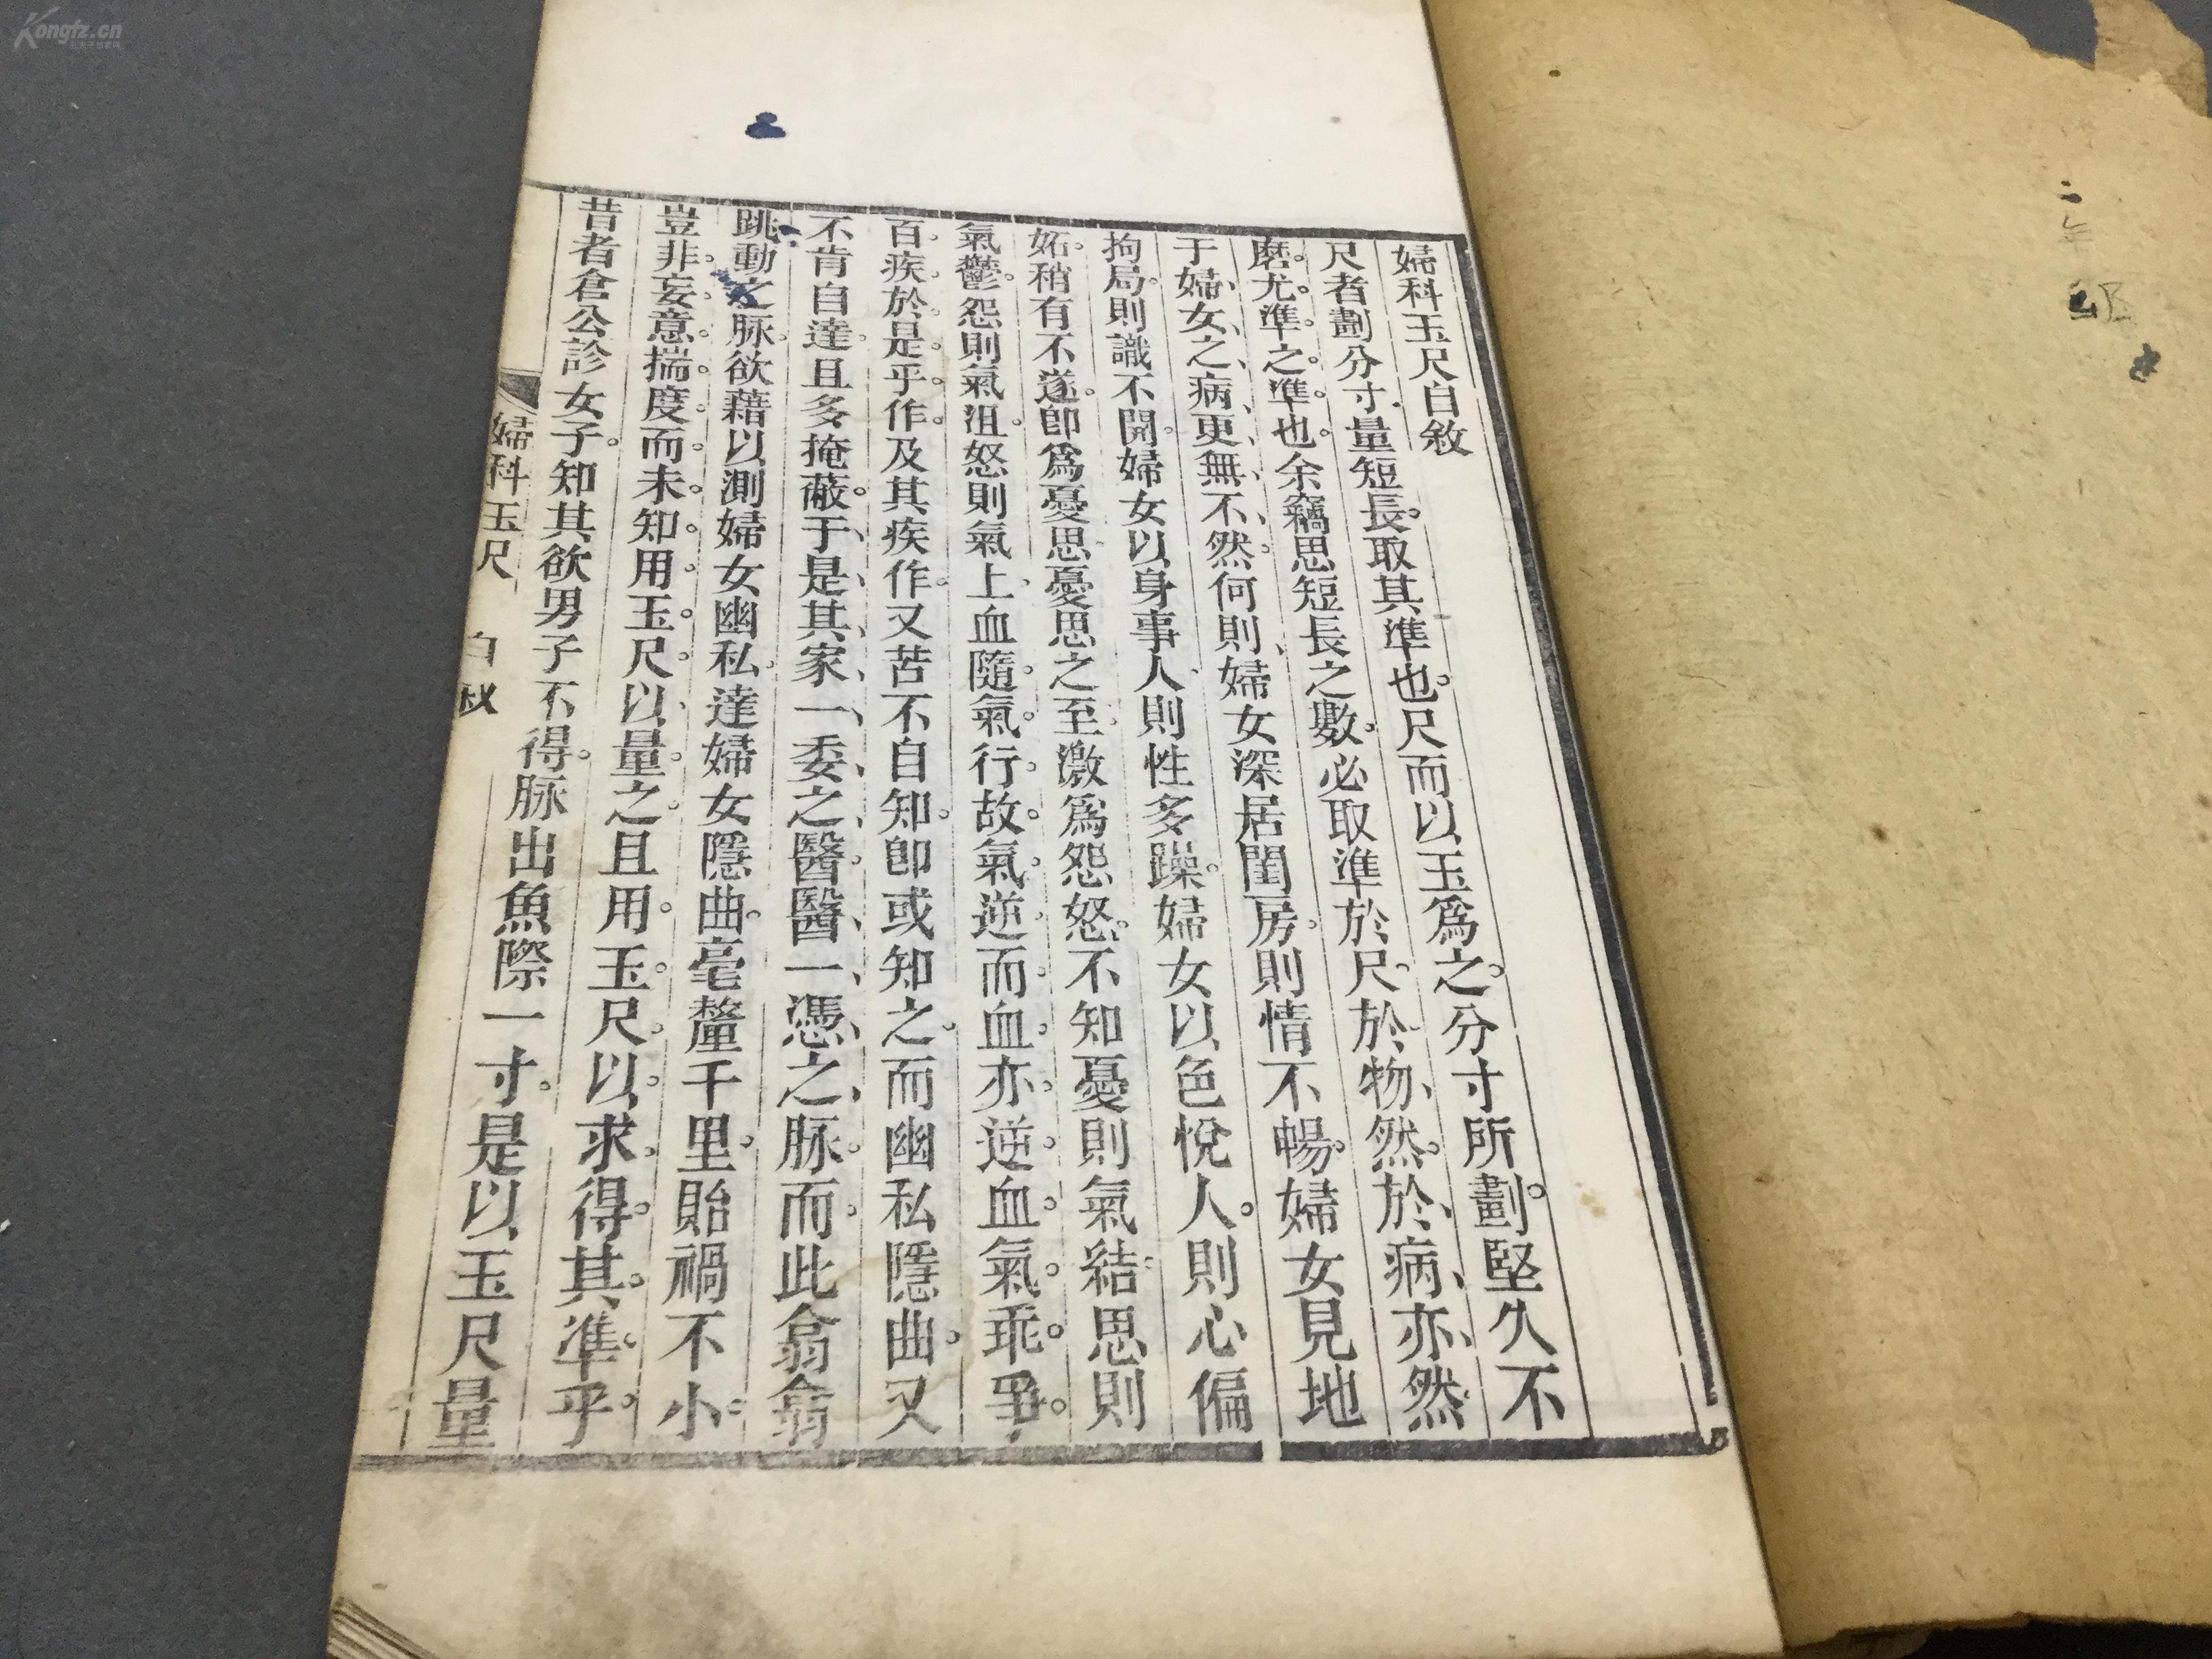 婦科玉尺自敘
尺者劃分寸量短長取其準也尺而以玉爲之分寸所劃堅久不
磨尤準之準也余竊思短長之數必取準於尺於物然於病亦然
于婦女之病更無不然何則婦女深居閨房則情不暢婦女見地
拘局則識不開婦女以身事人則性多躁婦女以色悅人則心偏
妬稍有不遂卽爲憂思憂思之至激爲怨怒不知憂則氣結思則
氣鬱怨則氣沮怒則氣上血隨氣行故氣逆而血亦逆血氣乖爭
百疾於是乎作及其疾作又苦不自知卽或知之而幽私隱曲又
不肯自達且多掩蔽于是其家一委之醫醫一憑之脉而此翕翕
跳動之脉欲藉以測婦女幽私達婦女隱曲毫釐千里貽禍不小
豈非妄意揣度而未知用玉尺以量之且用玉尺以求得其準乎
昔者倉公診女子知其欲男子不得脉出魚際一寸是以玉尺量
婦科玉尺 自敘
Kongfz.cn